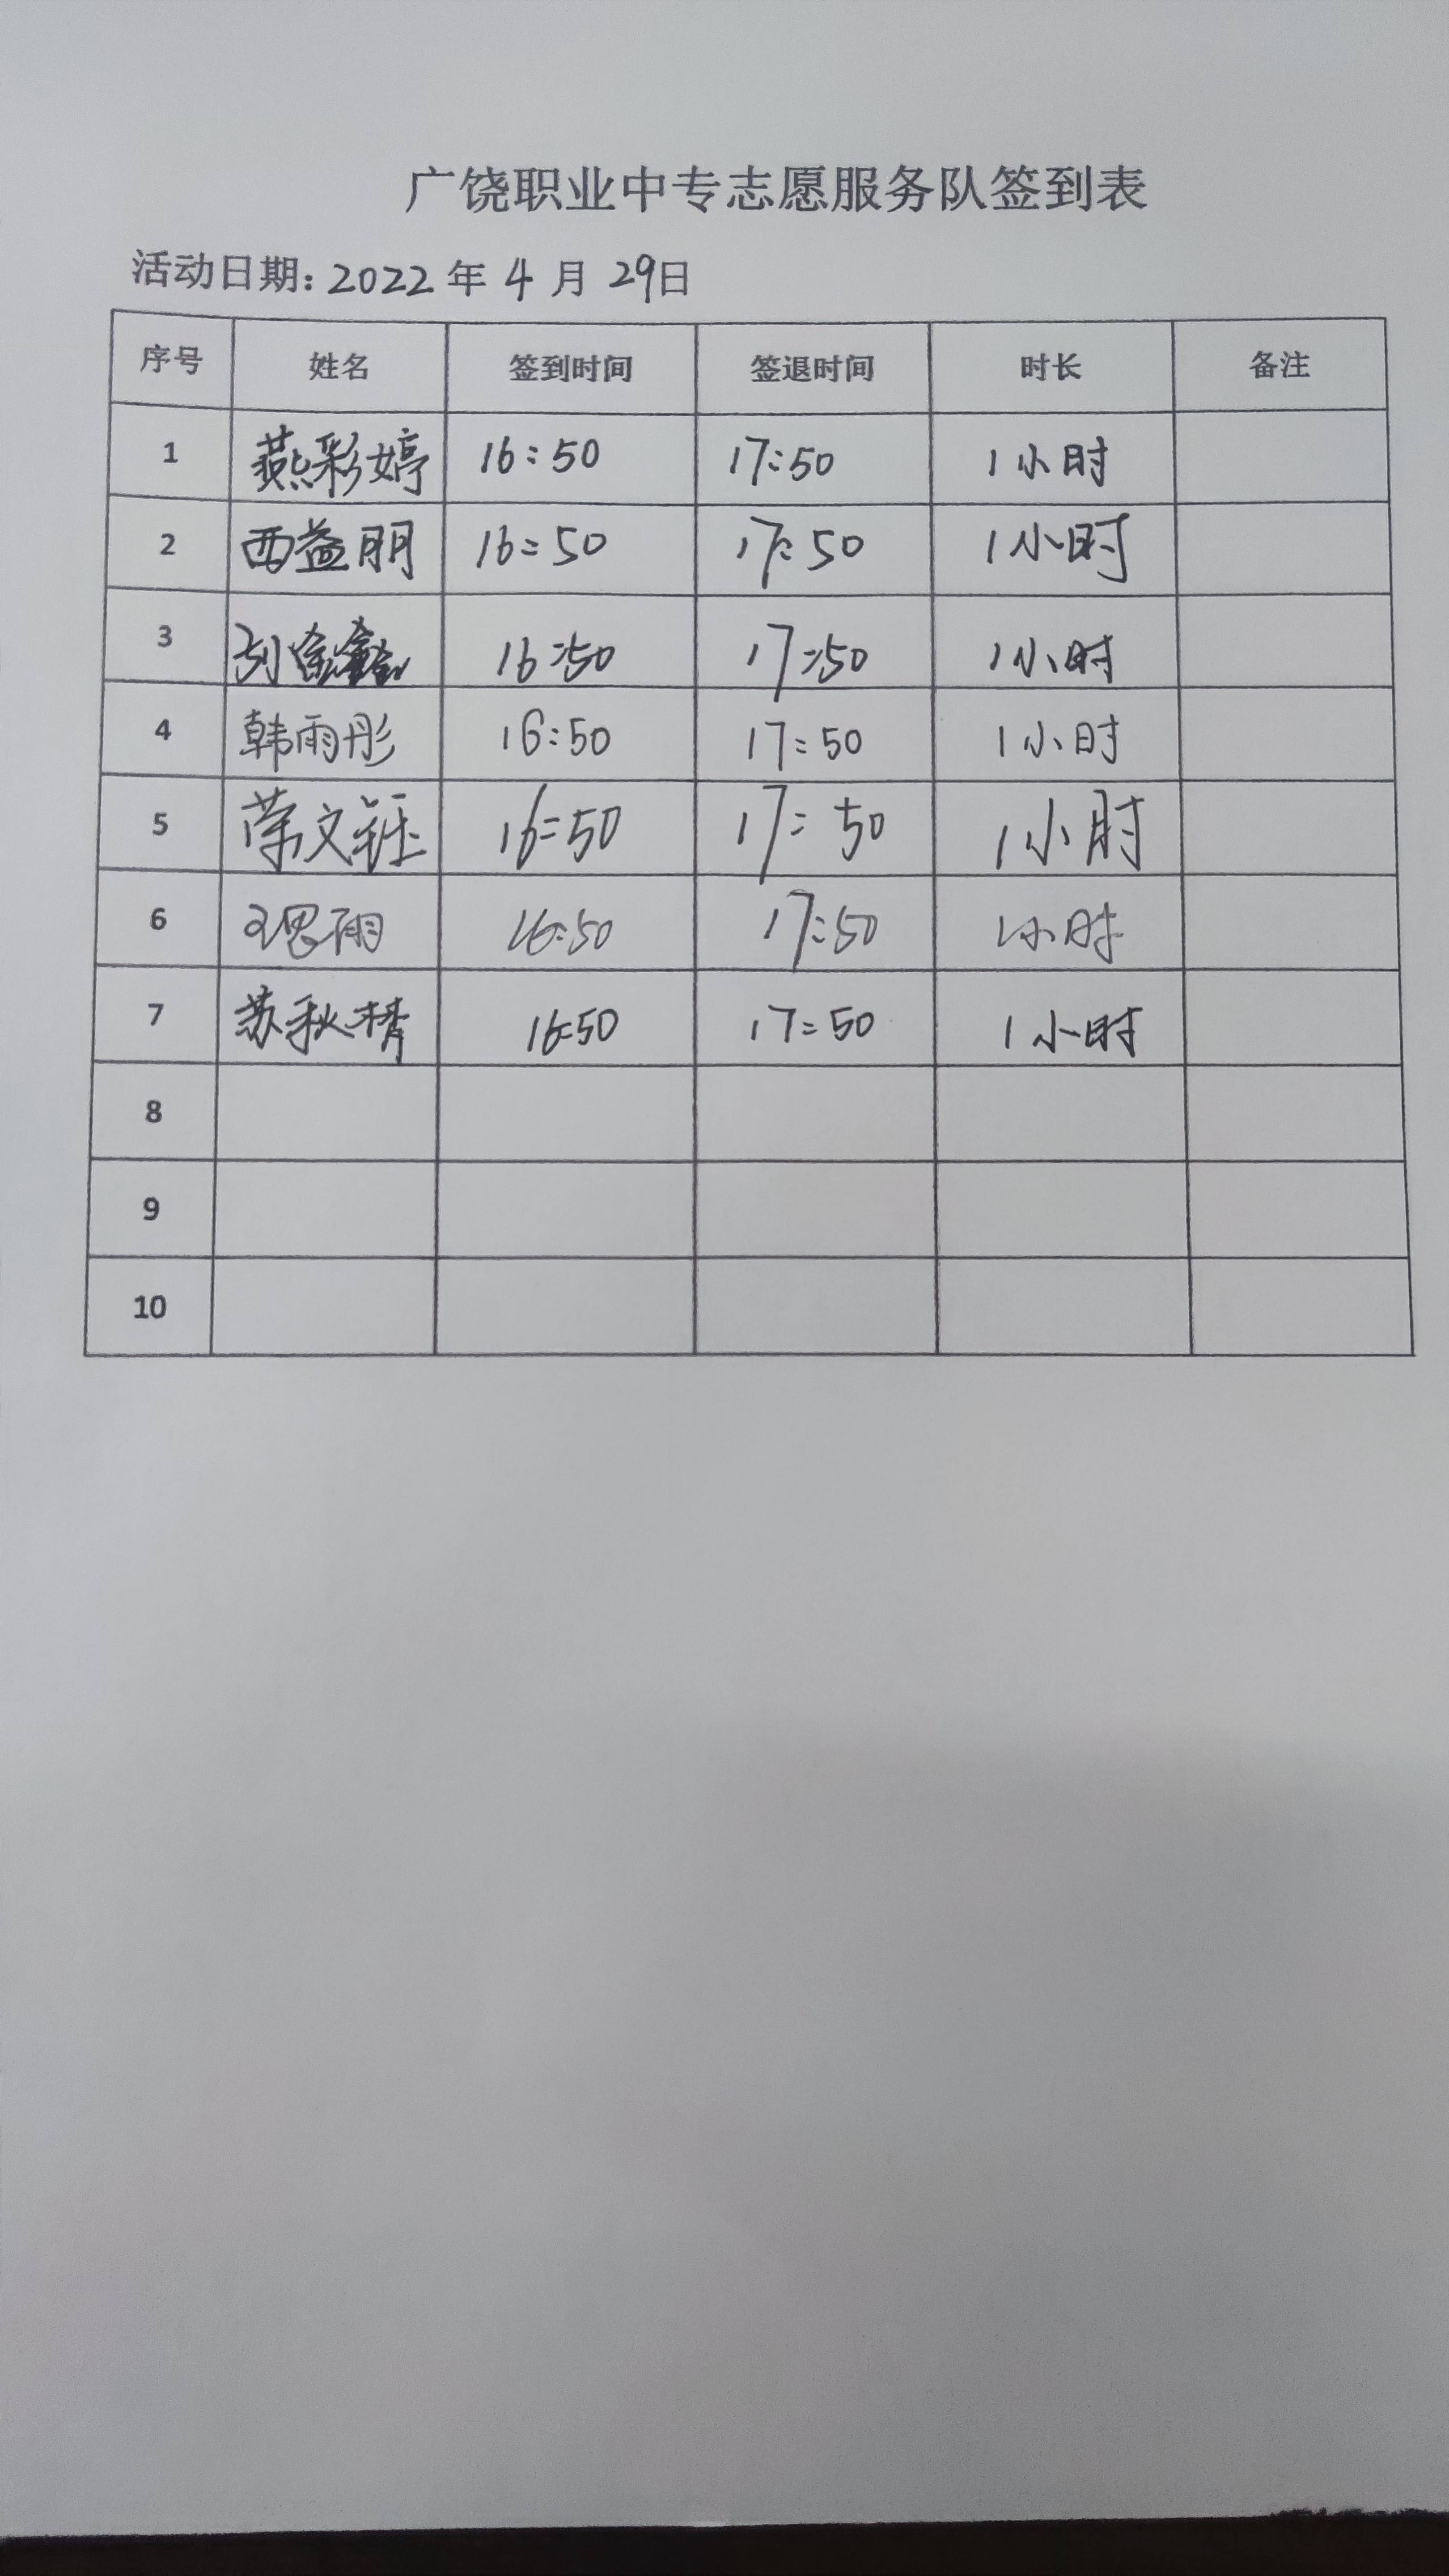 广饶职业中专志愿服务队签到表
活动日期: 2022 年 4 月 29日
序号 姓名 签到时间 签退时间 时长 备注
1 燕彩婷 16:50 17:50 1小时
2 西益朋 16:50 17:50 1小时
3 刘金鑫 16:50 17:50 1小时
4 韩雨彤 16:50 17:50 1小时
5 荣文钰 16:50 17:50 1小时
6 16:50 17:50 1小时
7 苏秋婧 16:50 17:50 1小时
8
9
10